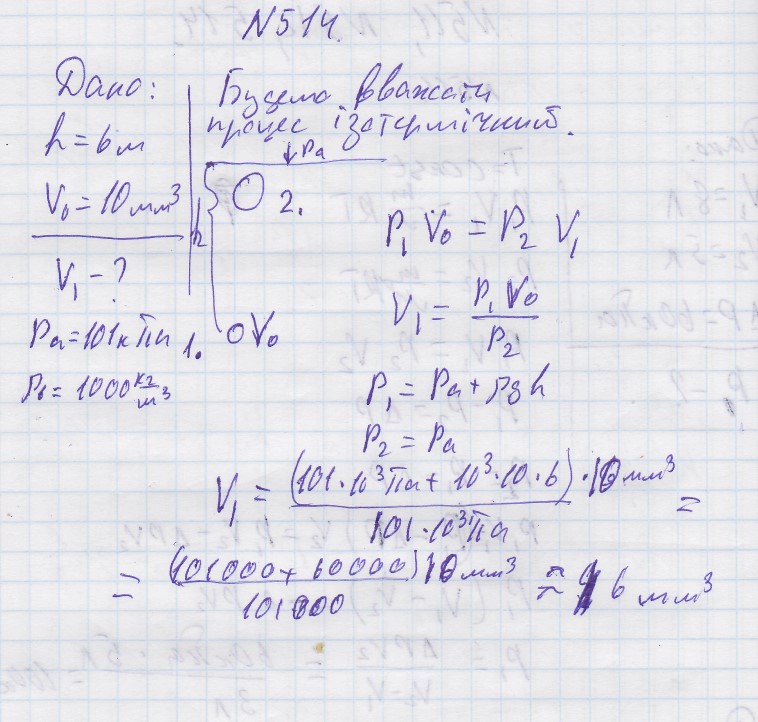 N514.
Дано:
h = 6 м
V₀ = 10 мм³
V₁ - ?
Pa = 101 кПа
ρв = 1000 кг/м³
Будемо вважати
процес ізотермічний.
↓Pa
2.
h
1. V₀
P₁ V₀ = P₂ V₁
V₁ = P₁ V₀ / P₂
P₁ = Pa + ρgh
P₂ = Pa
V₁ = (101·10³Па + 10³·10·6)·10 мм³ / 101·10³Па =
= (101000 + 60000) 10 мм³ / 101000 ≈ 16 мм³